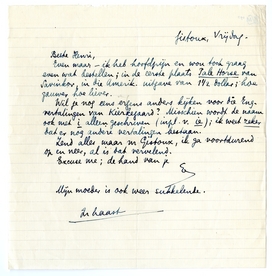 Gistoux, Vrijdag.
Beste Henri,
Even maar – ik heb hoofdpijn en wou toch graag
even wat bestellen; in de eerste plaats Pale Horse, van
Savinkov, in die Amerik. uitgave van 1½ dollar; hoe
gauwer hoe liever.
Wil je nog eens ergens anders kijken voor die Eng.
vertalingen van Kierkegaard? Misschien wordt de naam
ook met i alleen geschreven (inpl. v. ie); ik weet zeker,
dat er nog andere vertalingen bestaan.
Zend alles maar n. Gistoux, ik ga voortdurend
op en neer, al is dat vervelend.
Excuse me; de hand van je
E
Mijn moeder is ook weer sukkelende.
In haast